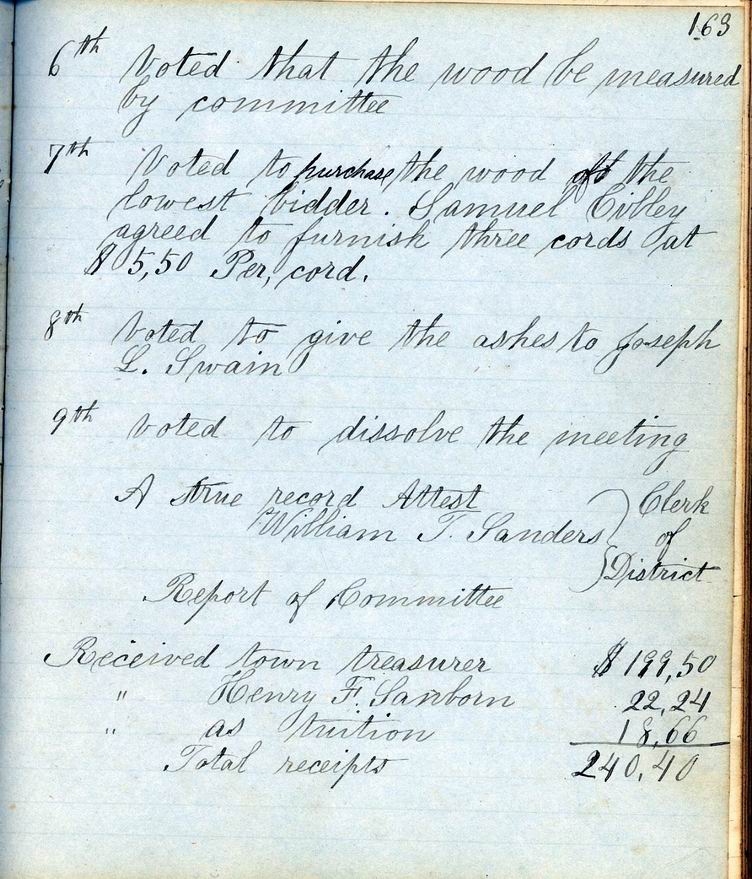 163
6th Voted that the wood be measured
by committee
7th Voted to purchase the wood of the
lowest bidder. Samuel
agreed to furnish three cords at
$5,50 Per, cord.
8th Voted to give the ashes to Joseph
L. Swain
9th Voted to dissolve the meeting
A true record Attest
William T. Sanders } Clerk
of
District
Report of Committee
Received town treasurer $199,50
" Henry F. Sanborn 22,24
" as tuition 18,66
Total receipts 240,40